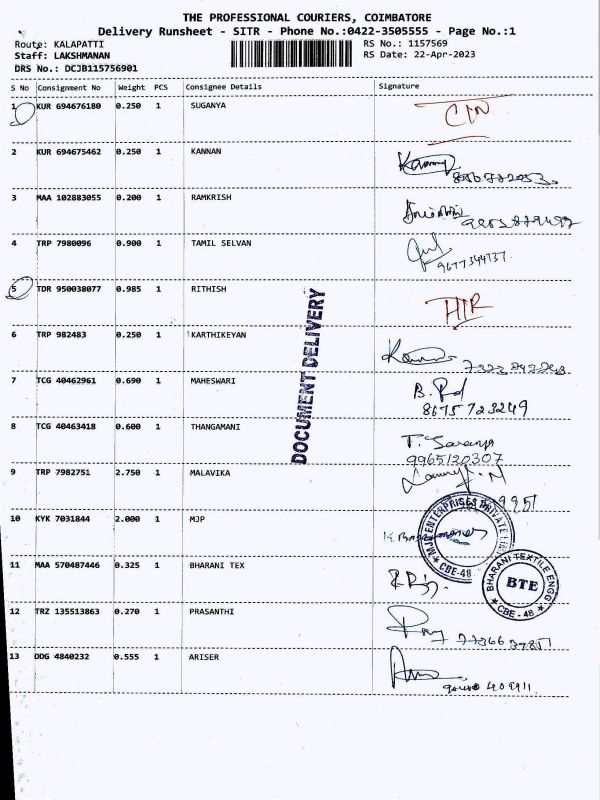 THE PROFESSIONAL COURIERS, COIMBATORE
Delivery Runsheet - SITR - Phone No.:0422-3505555 - Page No.:1
Route: KALAPATTI
RS No.: 1157569
Staff: LAKSHMANAN
RS Date: 22-Apr-2023
DRS No.: DCJB115756901
S No Consignment No Weight PCS Consignee Details Signature
1 KUR 694676180 0.250 1 SUGANYA
2 KUR 694675462 0.250 1 KANNAN
3 MAA 102883055 0.200 1 RAMKRISH
4 TRP 7980096 0.900 1 TAMIL SELVAN
9677344737
5 TDR 950038077 0.985 1 RITHISH
DOCUMENT DELIVERY
6 TRP 982483 0.250 1 KARTHIKEYAN
7 TCG 40462961 0.690 1 MAHESWARI
8675723249
8 TCG 40463418 0.600 1 THANGAMANI
9965120307
9 TRP 7982751 2.750 1 MALAVIKA
10 KYK 7031844 2.000 1 MJP
ENTERPRISES PRIVATE
CBE-48
11 MAA 570487446 0.325 1 BHARANI TEX
BHARANI TEXTILE ENGG
BTE
CBE - 48
12 TRZ 135513863 0.270 1 PRASANTHI
13 DDG 4840232 0.555 1 ARISER